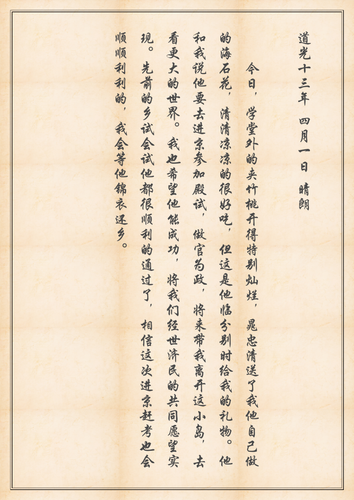 道光十三年 四月一日 晴朗
今日，学堂外的夹竹桃开得特别灿烂，晁忠清送了我他自己做
的海石花，清清凉凉的很好吃，但这是他临分别时给我的礼物。他
和我说他要去进京参加殿试，做官为政，将来带我离开这小岛，去
看更大的世界。我也希望他能成功，将我们经世济民的共同愿望实
现。先前的乡试会试他都很顺利的通过了，相信这次进京赶考也会
顺顺利利的，我会等他锦衣还乡。